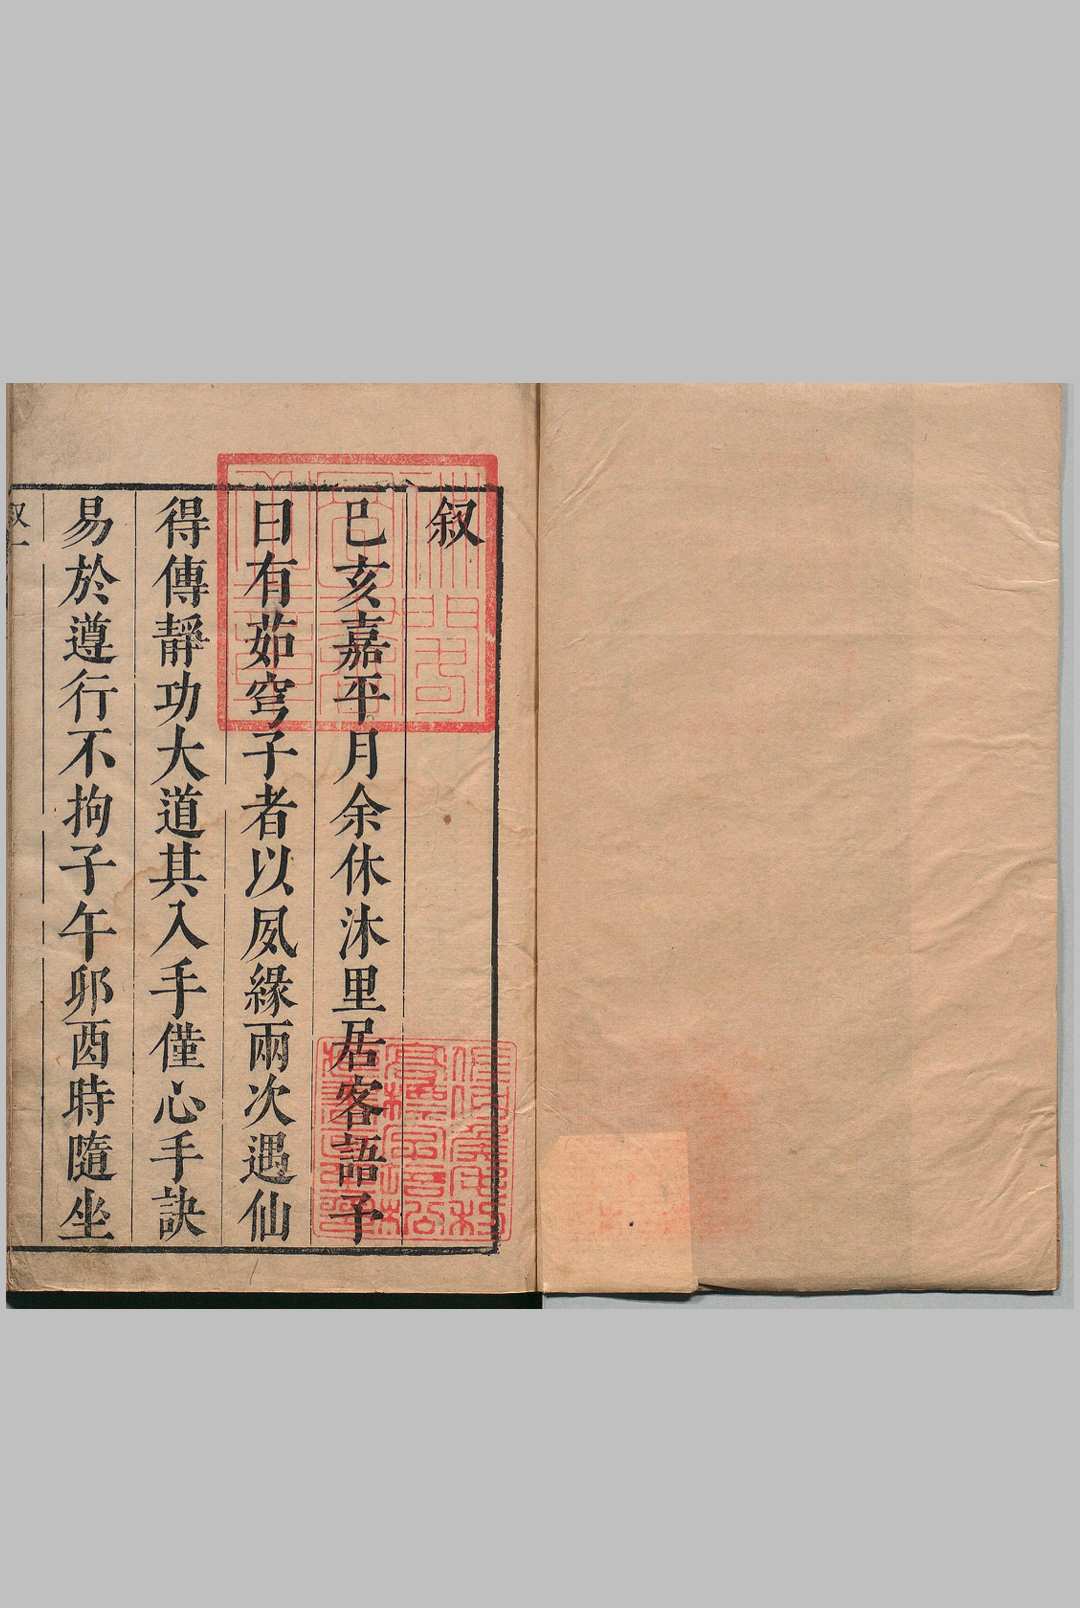 叙
己亥嘉平月余休沐里居客語予
曰有茹穹子者以夙緣兩次遇仙
得傳靜功大道其入手僅心手訣
易於遵行不拘子午卯酉時隨坐
叙一